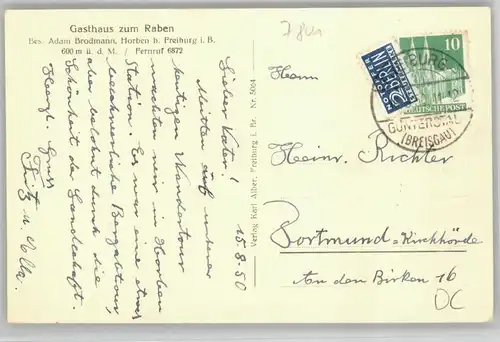 Gasthaus zum Raben
Bes. Adam Brodmann, Horben b. Freiburg i. B.
600 m ü. d. M. / Fernruf 6872
15.8.50
Lieber Vater!
Mitten auf unserer
heutigen Wandertour
machten wir in Horben
Station. Es war eine etwas
beschwerliche Bergabtour,
aber belohnt durch die
Schönheit der Landschaft.
Herzl. Gruss
Fritz u. Lolla.
Verlag Karl Alber, Freiburg i. Br. Nr. 5004
Herrn
Heinr. Richter
Dortmund-Kirchhörde
An den Birken 16
DC
NOTOPFER
2 BERLIN
STEUERMARKE
10
DEUTSCHE POST
GÜNTERSTAL
(BREISGAU)